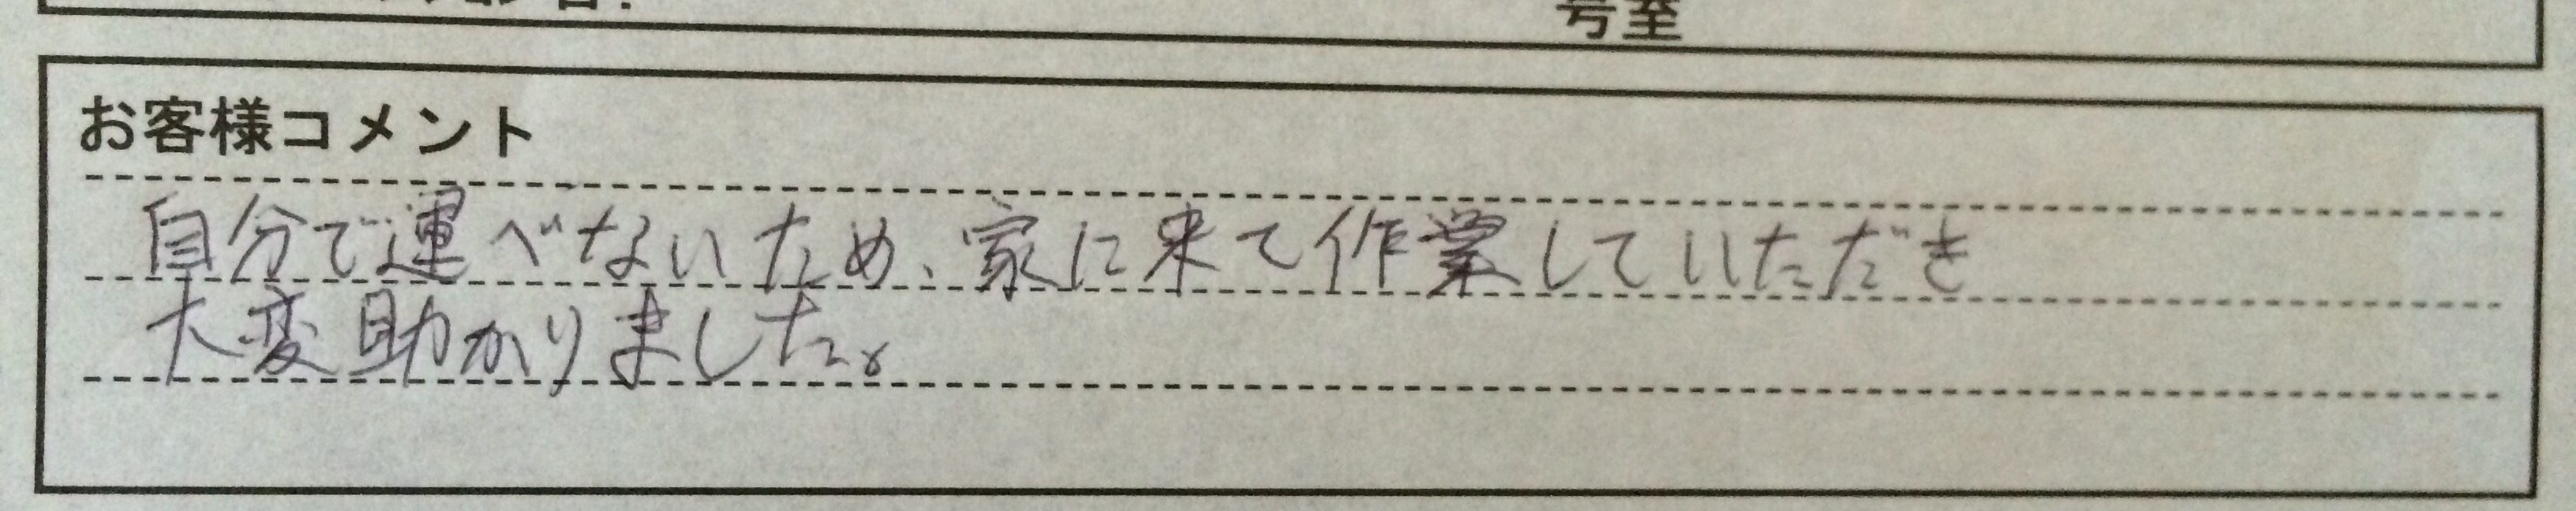 号室
お客様コメント
自分で運べないため、家に来て作業していただき
大変助かりました。